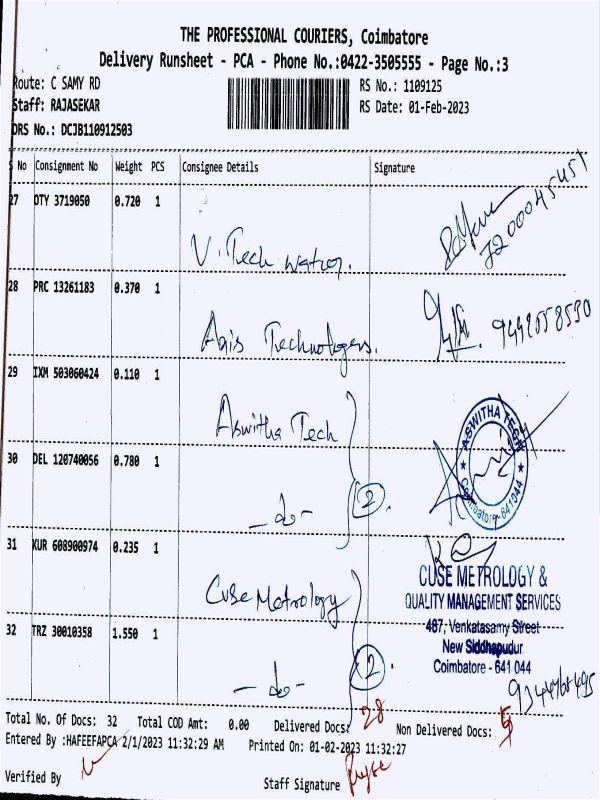 THE PROFESSIONAL COURIERS, Coimbatore
Delivery Runsheet - PCA - Phone No.:0422-3505555 - Page No.:3
Route: C SAMY RD
RS No.: 1109125
Staff: RAJASEKAR
RS Date: 01-Feb-2023
DRS No.: DCJB110912503
S No Consignment No Weight PCS Consignee Details Signature
27 OTY 3719050 0.720 1 V. Tech
28 PRC 13261183 0.370 1 Agis
29 IXM 503060424 0.110 1 Aswitha Tech
ASWITHA TECH
Coimbatore-641044
30 DEL 120740056 0.780 1 -do- 2
31 KUR 608900974 0.235 1 Cuse Metrology
CUSE METROLOGY &
QUALITY MANAGEMENT SERVICES
487, Venkatasamy Street
New Siddhapudur
Coimbatore - 641 044
32 TRZ 30010358 1.550 1 -do- 2.
Total No. Of Docs: 32 Total COD Amt: 0.00 Delivered Docs: 28 Non Delivered Docs:
Entered By :HAFEEFAPCA 2/1/2023 11:32:29 AM Printed On: 01-02-2023 11:32:27
Verified By Staff Signature